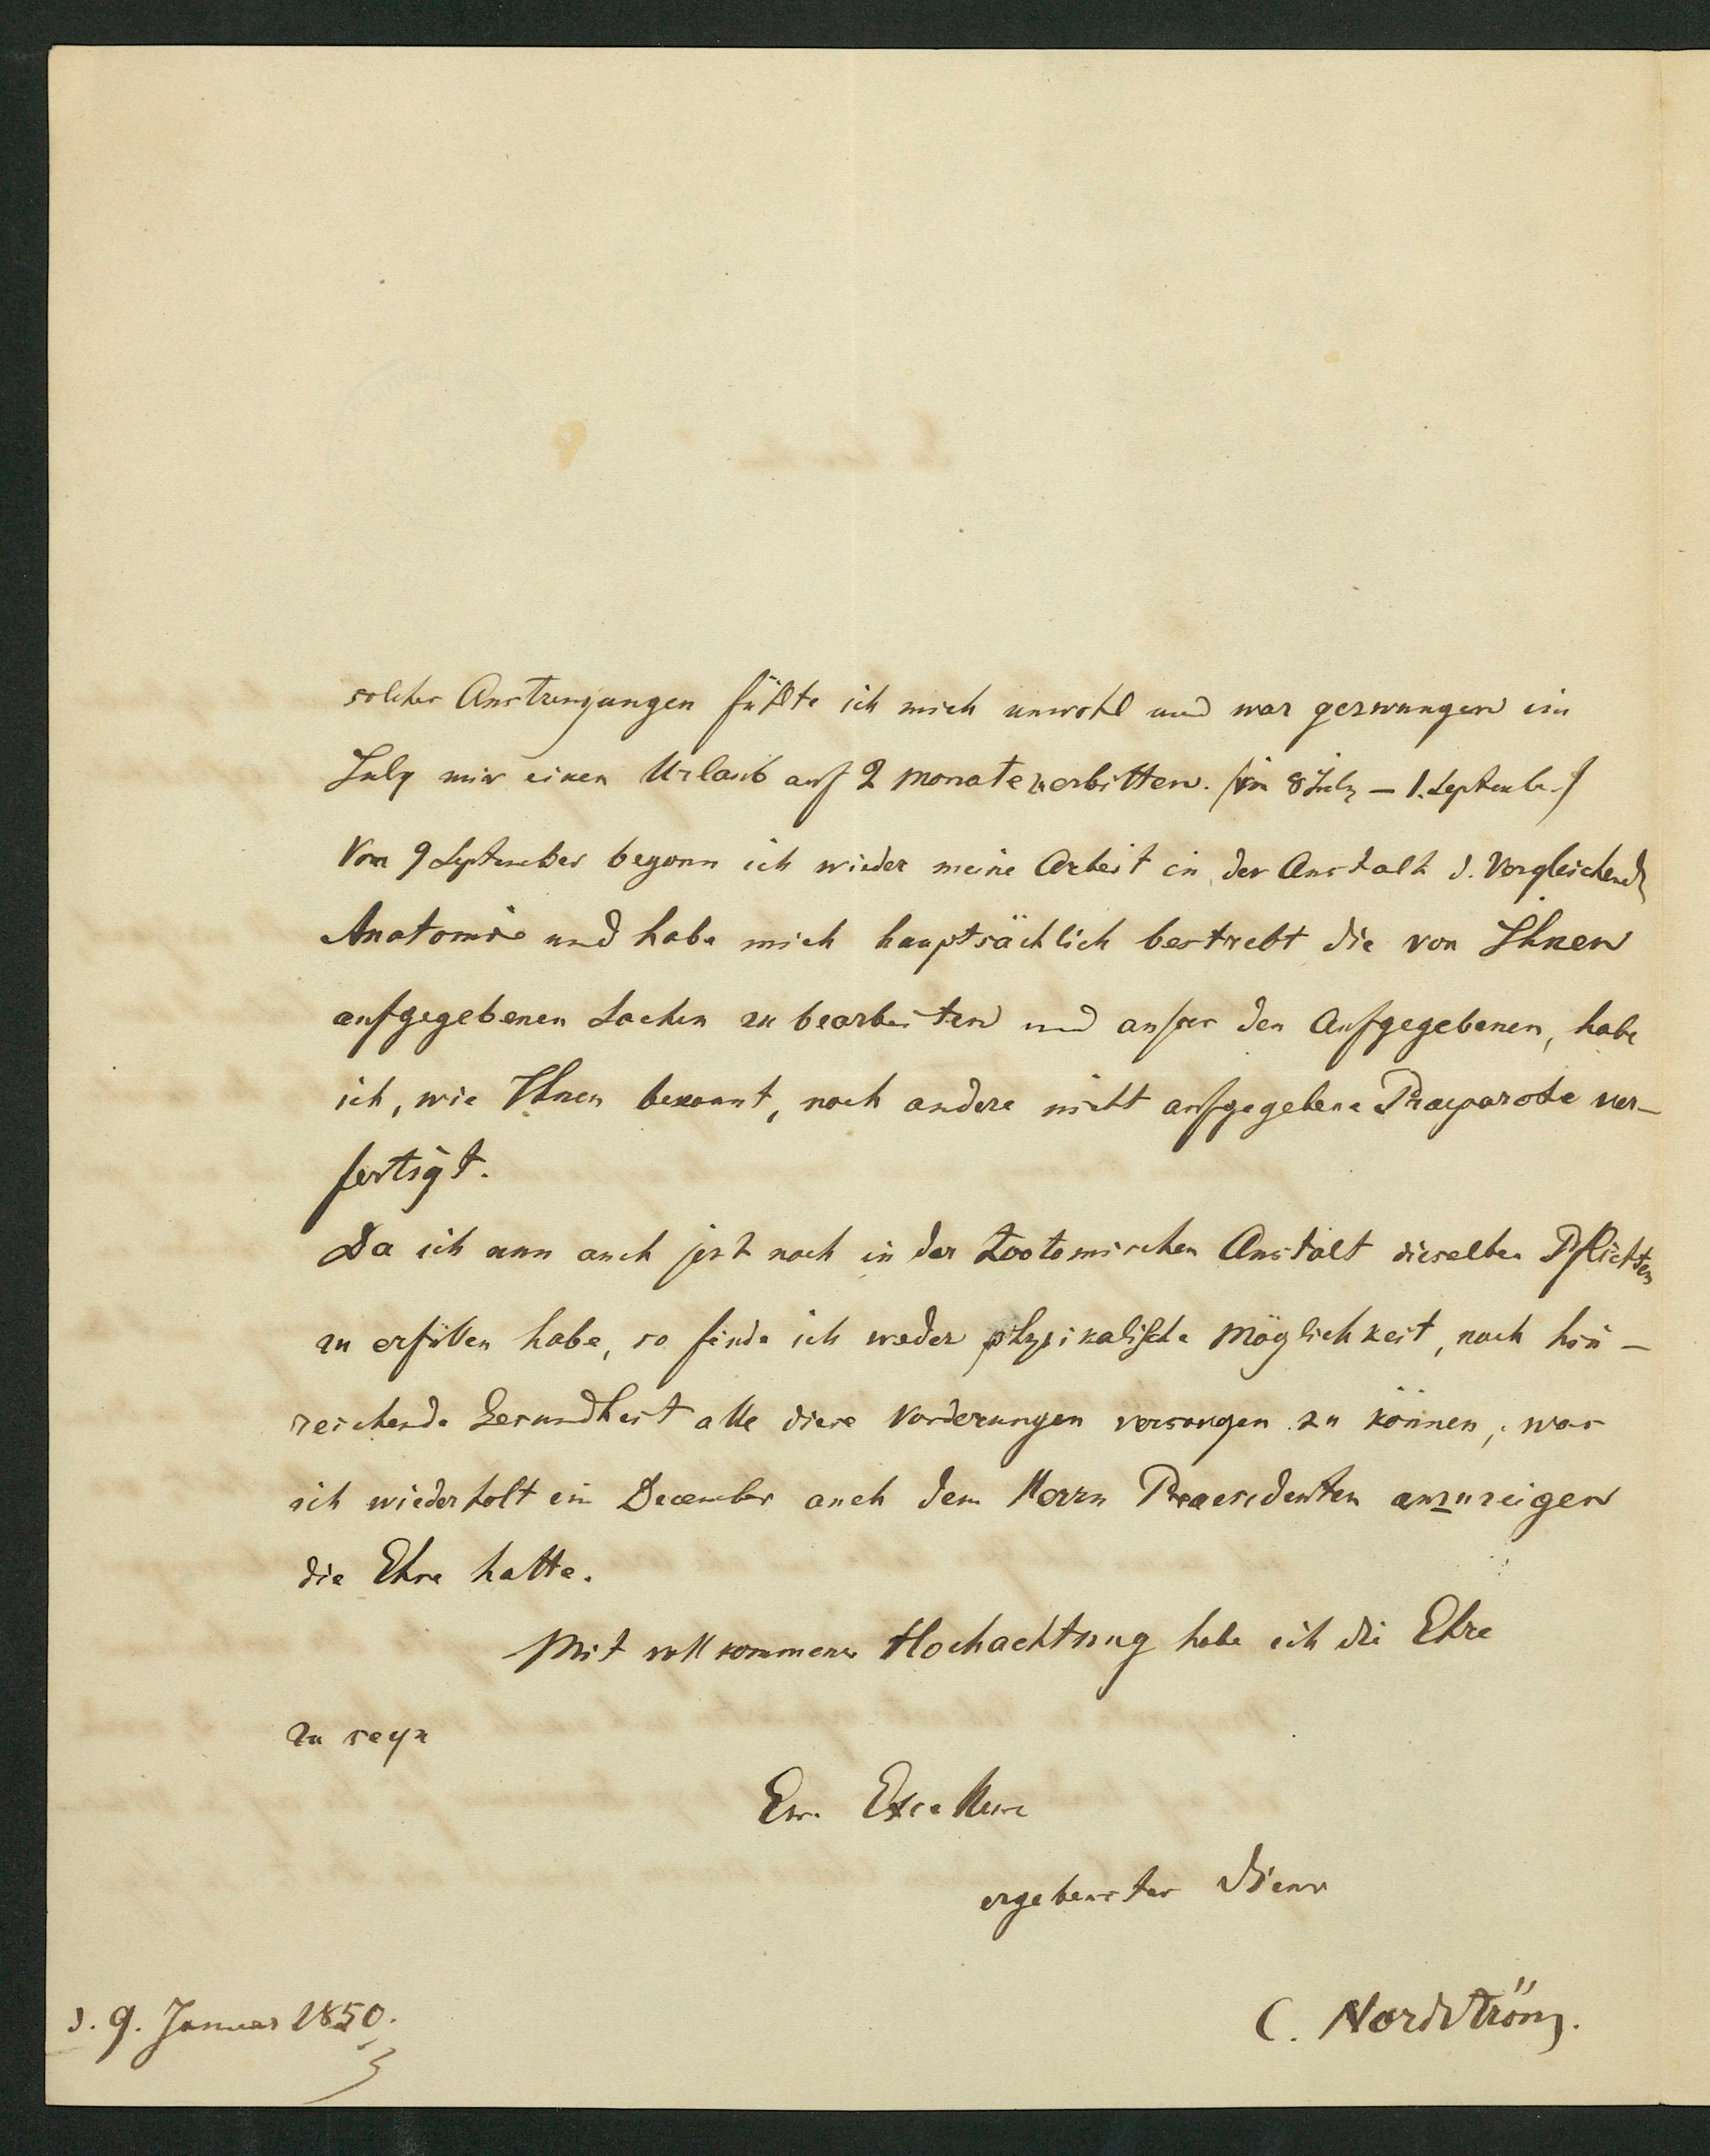 solcher Anstrengungen fühlte ich mich unwohl und war gezwungen im
July mir einen Urlaub auf 2 Monate erbitten. (vom 8 July – 1. September)
Vom 9 September begann ich wieder meine Arbeit in der Anstalt d. Vergleichend
Anatomie und habe mich hauptsächlich bestrebt die von Ihnen
aufgegebenen Sachen zu bearbeiten und ausser den Aufgegebenen, habe
ich, wie Ihnen bekannt, noch andere nicht aufgegebene Praeparate ver–
fertigt.
Da ich nun auch jezt noch in der Zootomischen Anstalt dieselben Pflichten
zu erfüllen habe, so finde ich weder physikalische Möglichkeit, noch hin–
reichende Gesundheit alle diese Vorderungen versorgen zu können, was
ich wiederholt im December auch dem Herrn Praesidenten anzuzeigen
die Ehre hatte.
Mit vollkommener Hochachtung habe ich die Ehre
zu seyn
Ew. Excellenz
ergebenster Diener
C. Nordström.
d. 9. Januar 1850.